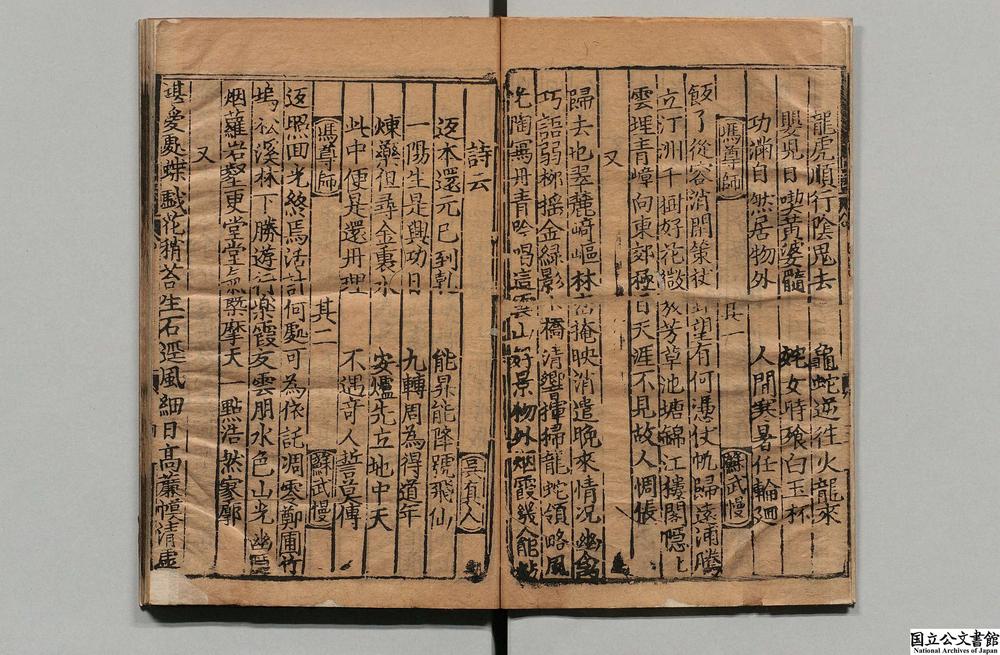 龍虎順行陰鬼去　龜蛇逆往火龍來
嬰兒日喫黃婆髓　姹女時飱白玉杯
功滿自然居物外　人間寒暑任輪廻
馮尊師　其一　蘇武慢
飯了從容消閒策杖　望有何憑仗帆歸遠浦鷺
立汀洲千樹好花微放芳草池塘錦江樓閣隱上
雲埋青嶂向東郊極目天涯不見故人惆悵
又
歸去也翠麓崎嶇林　掩映消遣晚來情况幽禽
巧語弱柳搖金綠影　橋清響揮掃龍蛇領略風
光陶寫丹青吟唱這雲山好景物外烟霞幾能
詩云　呉真人
返本還元已到乾　能昇能降號飛仙
一陽生是興功日　九轉周為得道年
煉藥但尋金裏水　安爐先立地中天
此中便是還丹理　不遇奇人誓莫傳
馮尊師　其二　蘇武慢
返照回光終焉活計何處可為依託凋零鄭圃竹
塢松溪林下勝遊行樂霞友雲朋水色山光幽隱
烟蘿岩壑更堂堂氣槩摩天一點浩然寥廓
又
堪愛處蝶戲花稍苔生石逕風細日高簾幙清虛
国立公文書館
National Archives of Japan